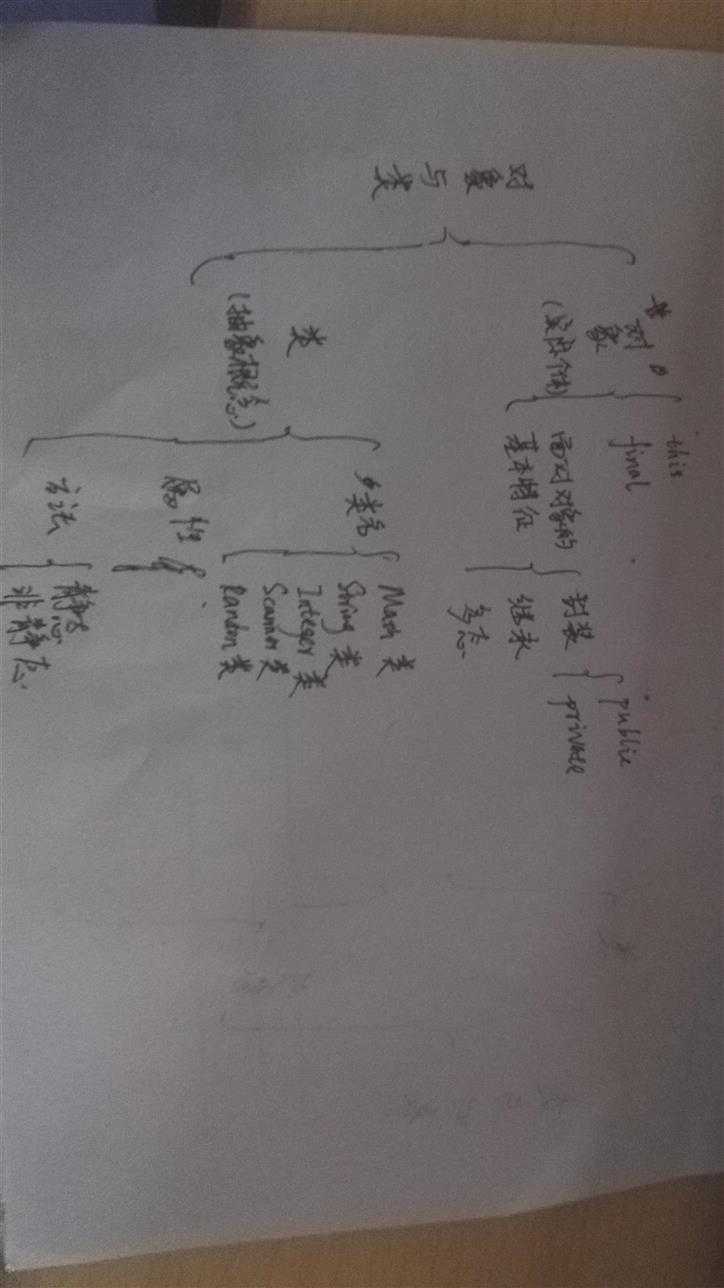 对象与类
对象
(实际个体)
this
final
面对对象的
基本特征
封装
public
private
继承
多态
类
(抽象概念)
类名
Math 类
String 类
Integer 类
Scanner 类
Random 类
属性
方法
静态
非静态